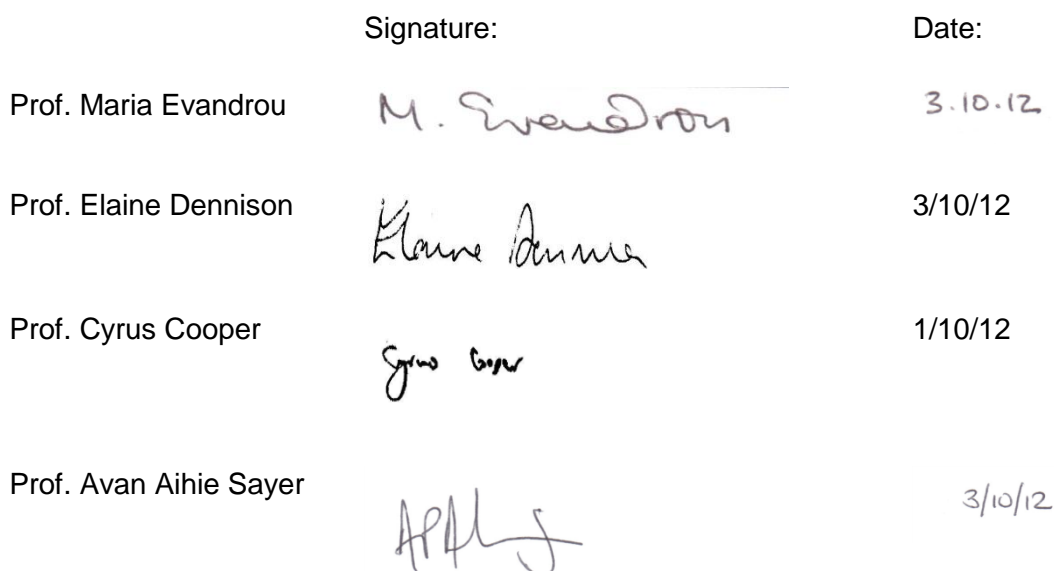 Signature: Date:
Prof. Maria Evandrou M. Evandrou 3.10.12
Prof. Elaine Dennison Elaine Dennison 3/10/12
Prof. Cyrus Cooper Cyrus Cooper 1/10/12
Prof. Avan Aihie Sayer 3/10/12